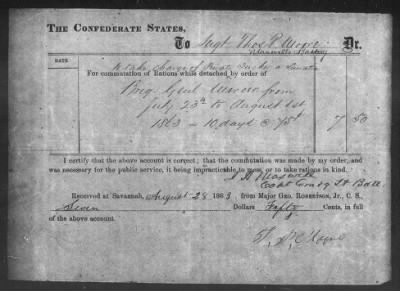 THE CONFEDERATE STATES,
To Sergt Thos P. Moore Dr.
Maxwells Battery
DATE.
to take charge of Private a lunatic
For commutation of Rations while detached by order of
Brig Genl Mercer from
July 23rd to August 1st
1863 - 10 days @ 75¢ 7 50
I certify that the above account is correct; that the commutation was made by my order, and
was necessary for the public service, it being impracticable to move or to take rations in kind.
Maxwell
Capt Comdg Lt Batt
Received at Savannah, August 28 1863 from Major Geo. Robertson, Jr., C. S.,
Seven Dollars Fifty Cents, in full
of the above account.
Moore